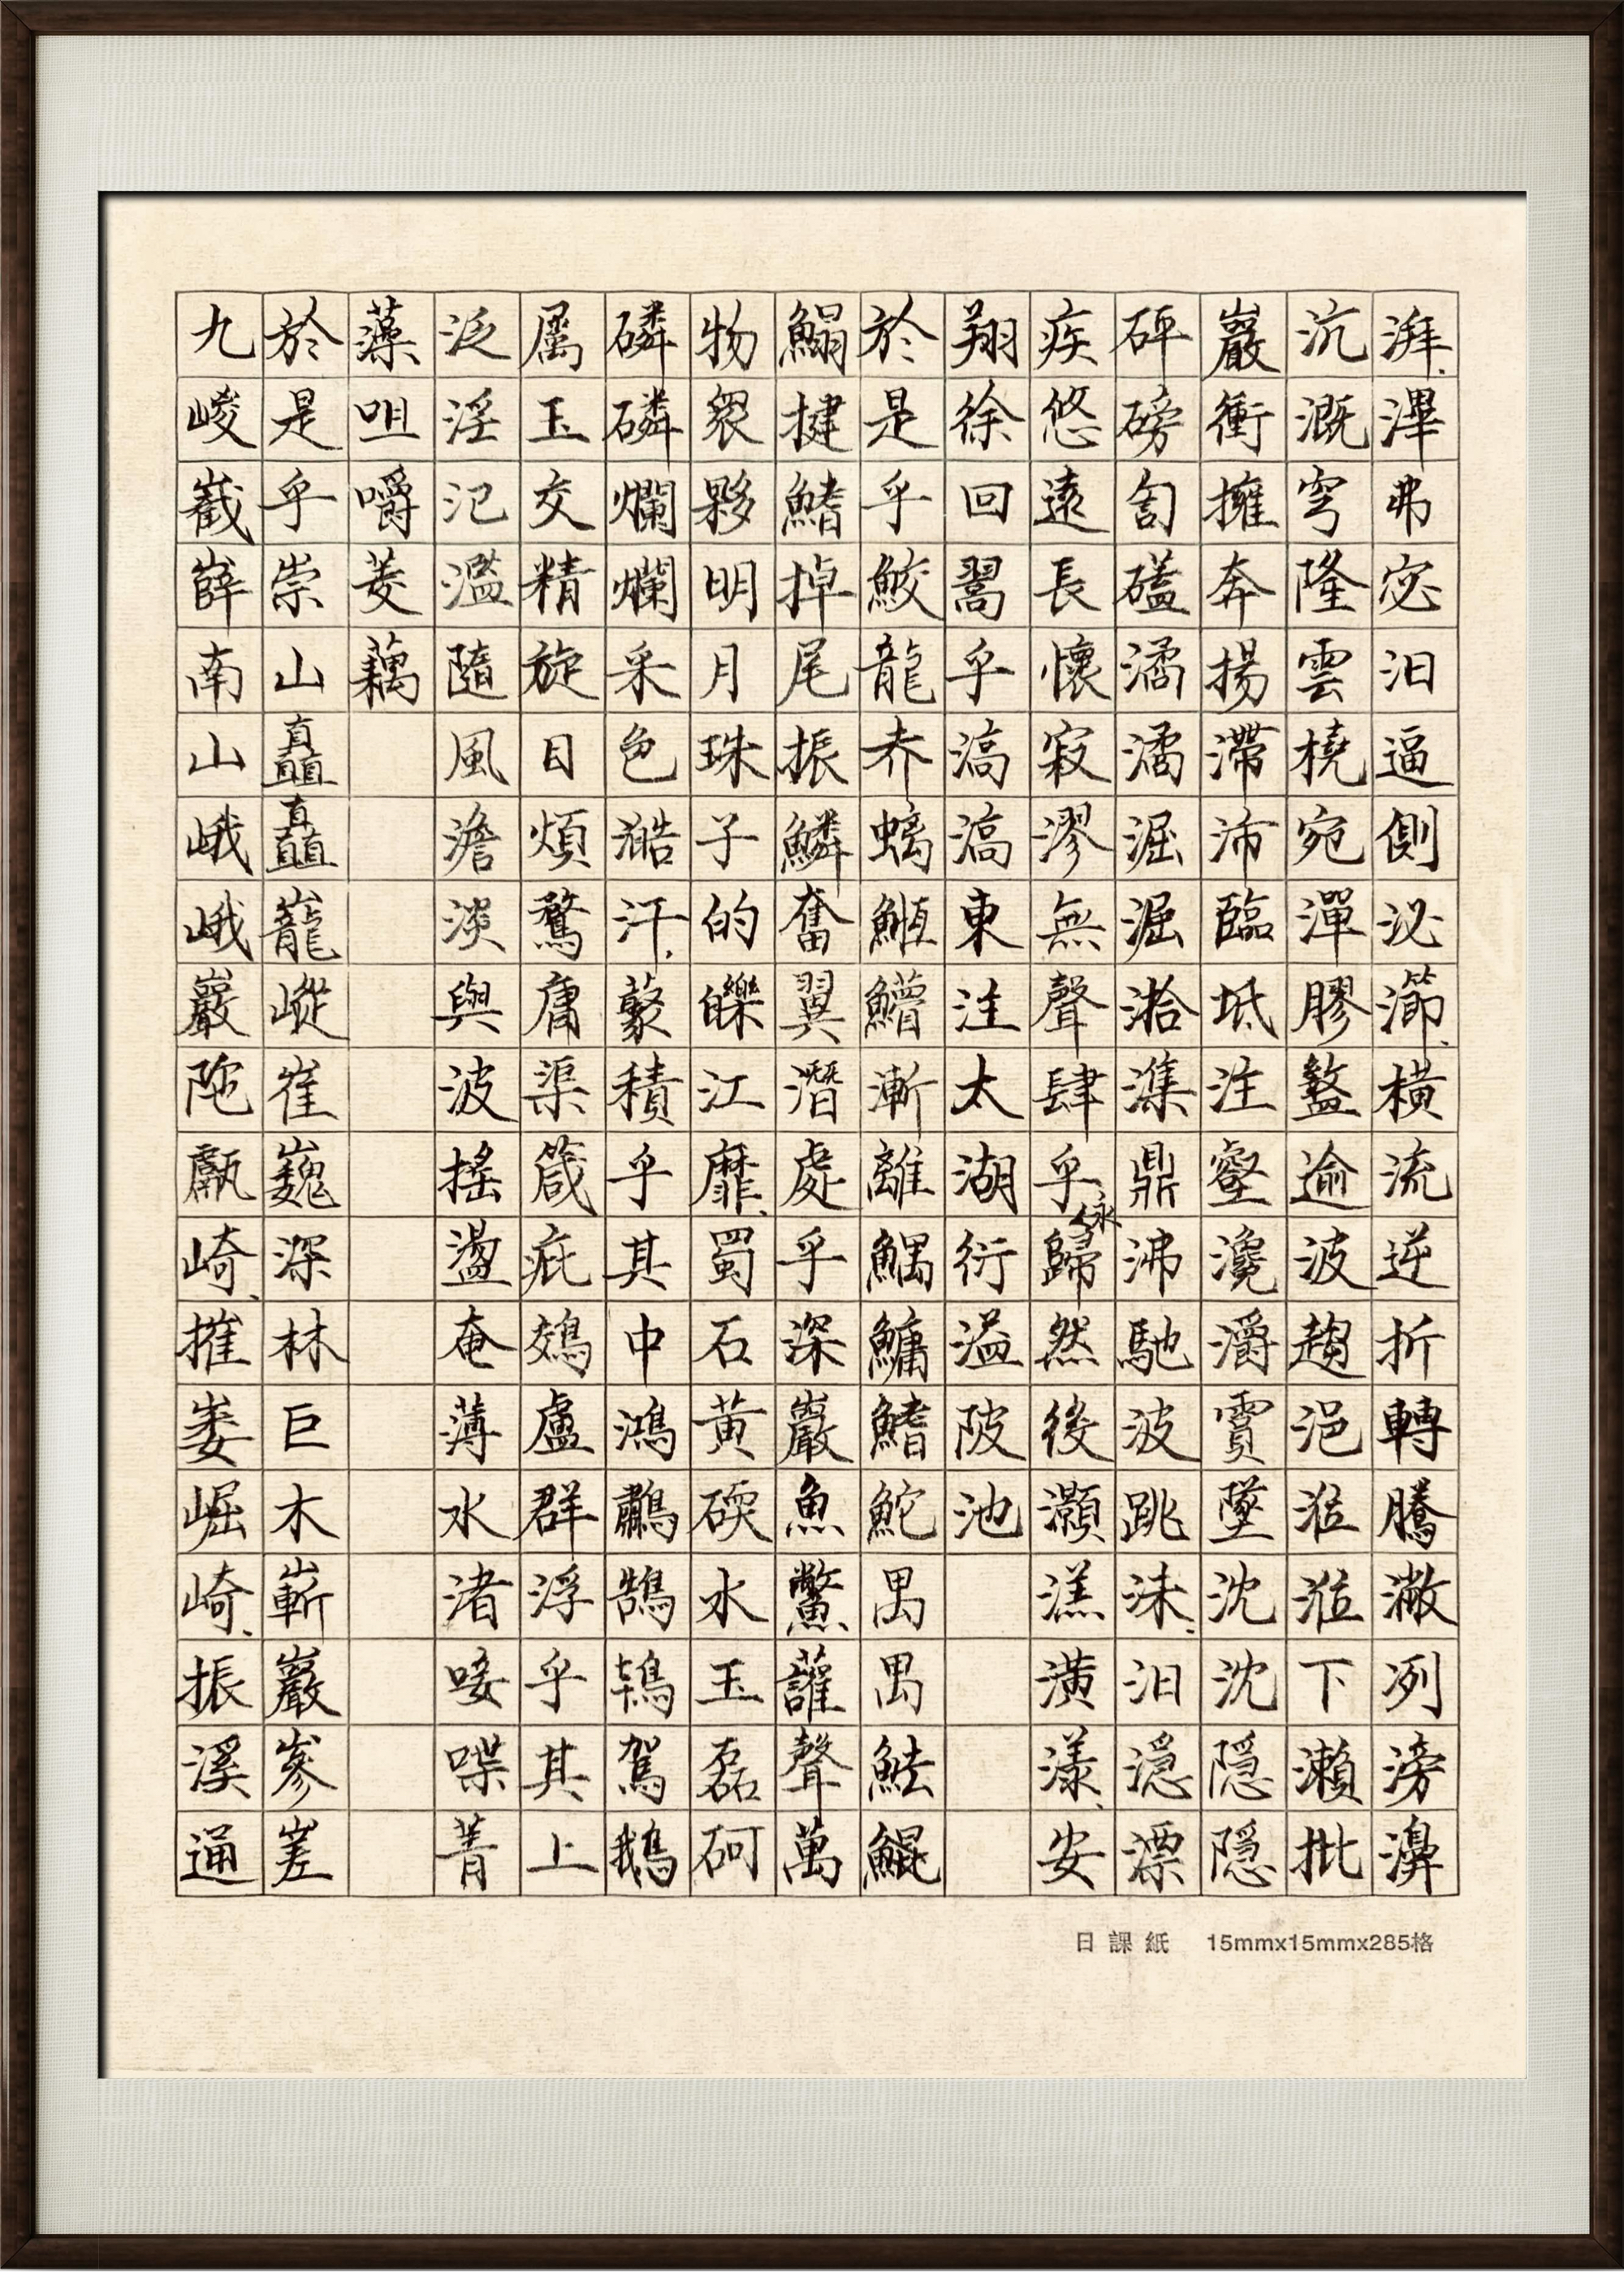 湃滭弗宓汩逼側泌瀄橫流逆折轉騰潎冽滂濞
沆溉穹隆雲橈宛潬膠盭逾波趨浥涖涖下瀨批
巖衝擁奔揚滯沛臨坻注壑瀺灂霣墜沈沈隠隠
砰磅訇礚潏潏淈淈湁潗鼎沸馳波跳沫汩㴔漂
疾悠遠長懷寂漻無聲肆乎永歸然後灝溔潢漾安
翔徐回翯乎滈滈東注太湖衍溢陂池
於是乎鮫龍赤螭䱭䲛漸離鰅鱅鰭鮀禺禺魼鯤
鰨揵鰭掉尾振鱗奮翼潛處乎深巖魚鱉讙聲萬
物衆夥明月珠子的皪江靡蜀石黃碝水玉磊砢
磷磷爛爛采色澔汗藂積乎其中鴻鷫鵠鴇駕鵝
属玉交精旋目煩鶩庸渠箴疵鵁盧群浮乎其上
泛淫氾濫隨風澹淡與波搖盪奄薄水渚唼喋菁
藻咀嚼菱藕
於是乎崇山矗矗巃嵷崔巍深林巨木嶄巖嵾嵯
九嵕嶻嶭南山峨峨巖陁甗崎摧崣崛崎振溪通
日課紙 15mmx15mmx285格